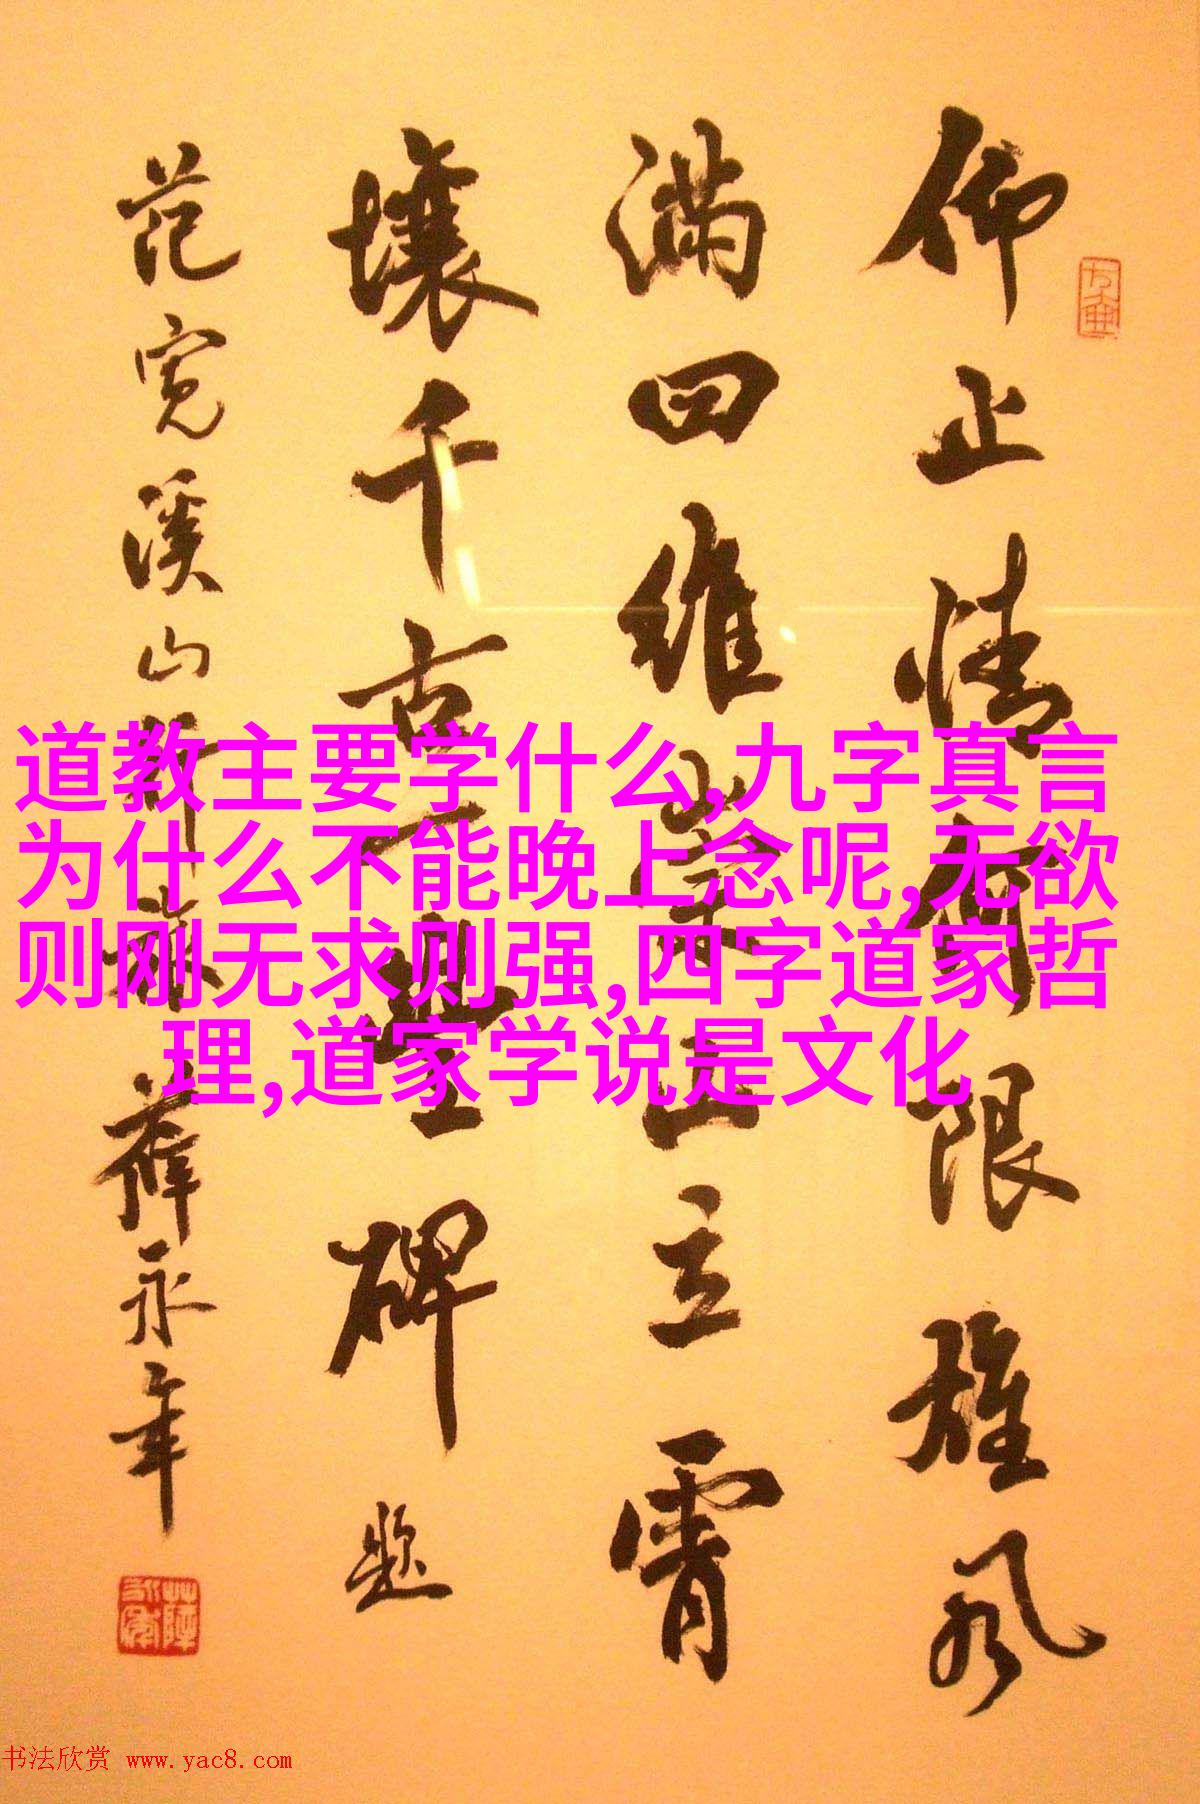 仰止情何限雄风
满四维崇山立霄
壤千古一丰碑 题
范宽溪山行旅 薛永年
道教主要学什么,九字真言
为什么不能晚上念呢,无欲
则刚无求则强,四字道家哲
理,道家学说是文化
书法欣赏 www.yac8.com